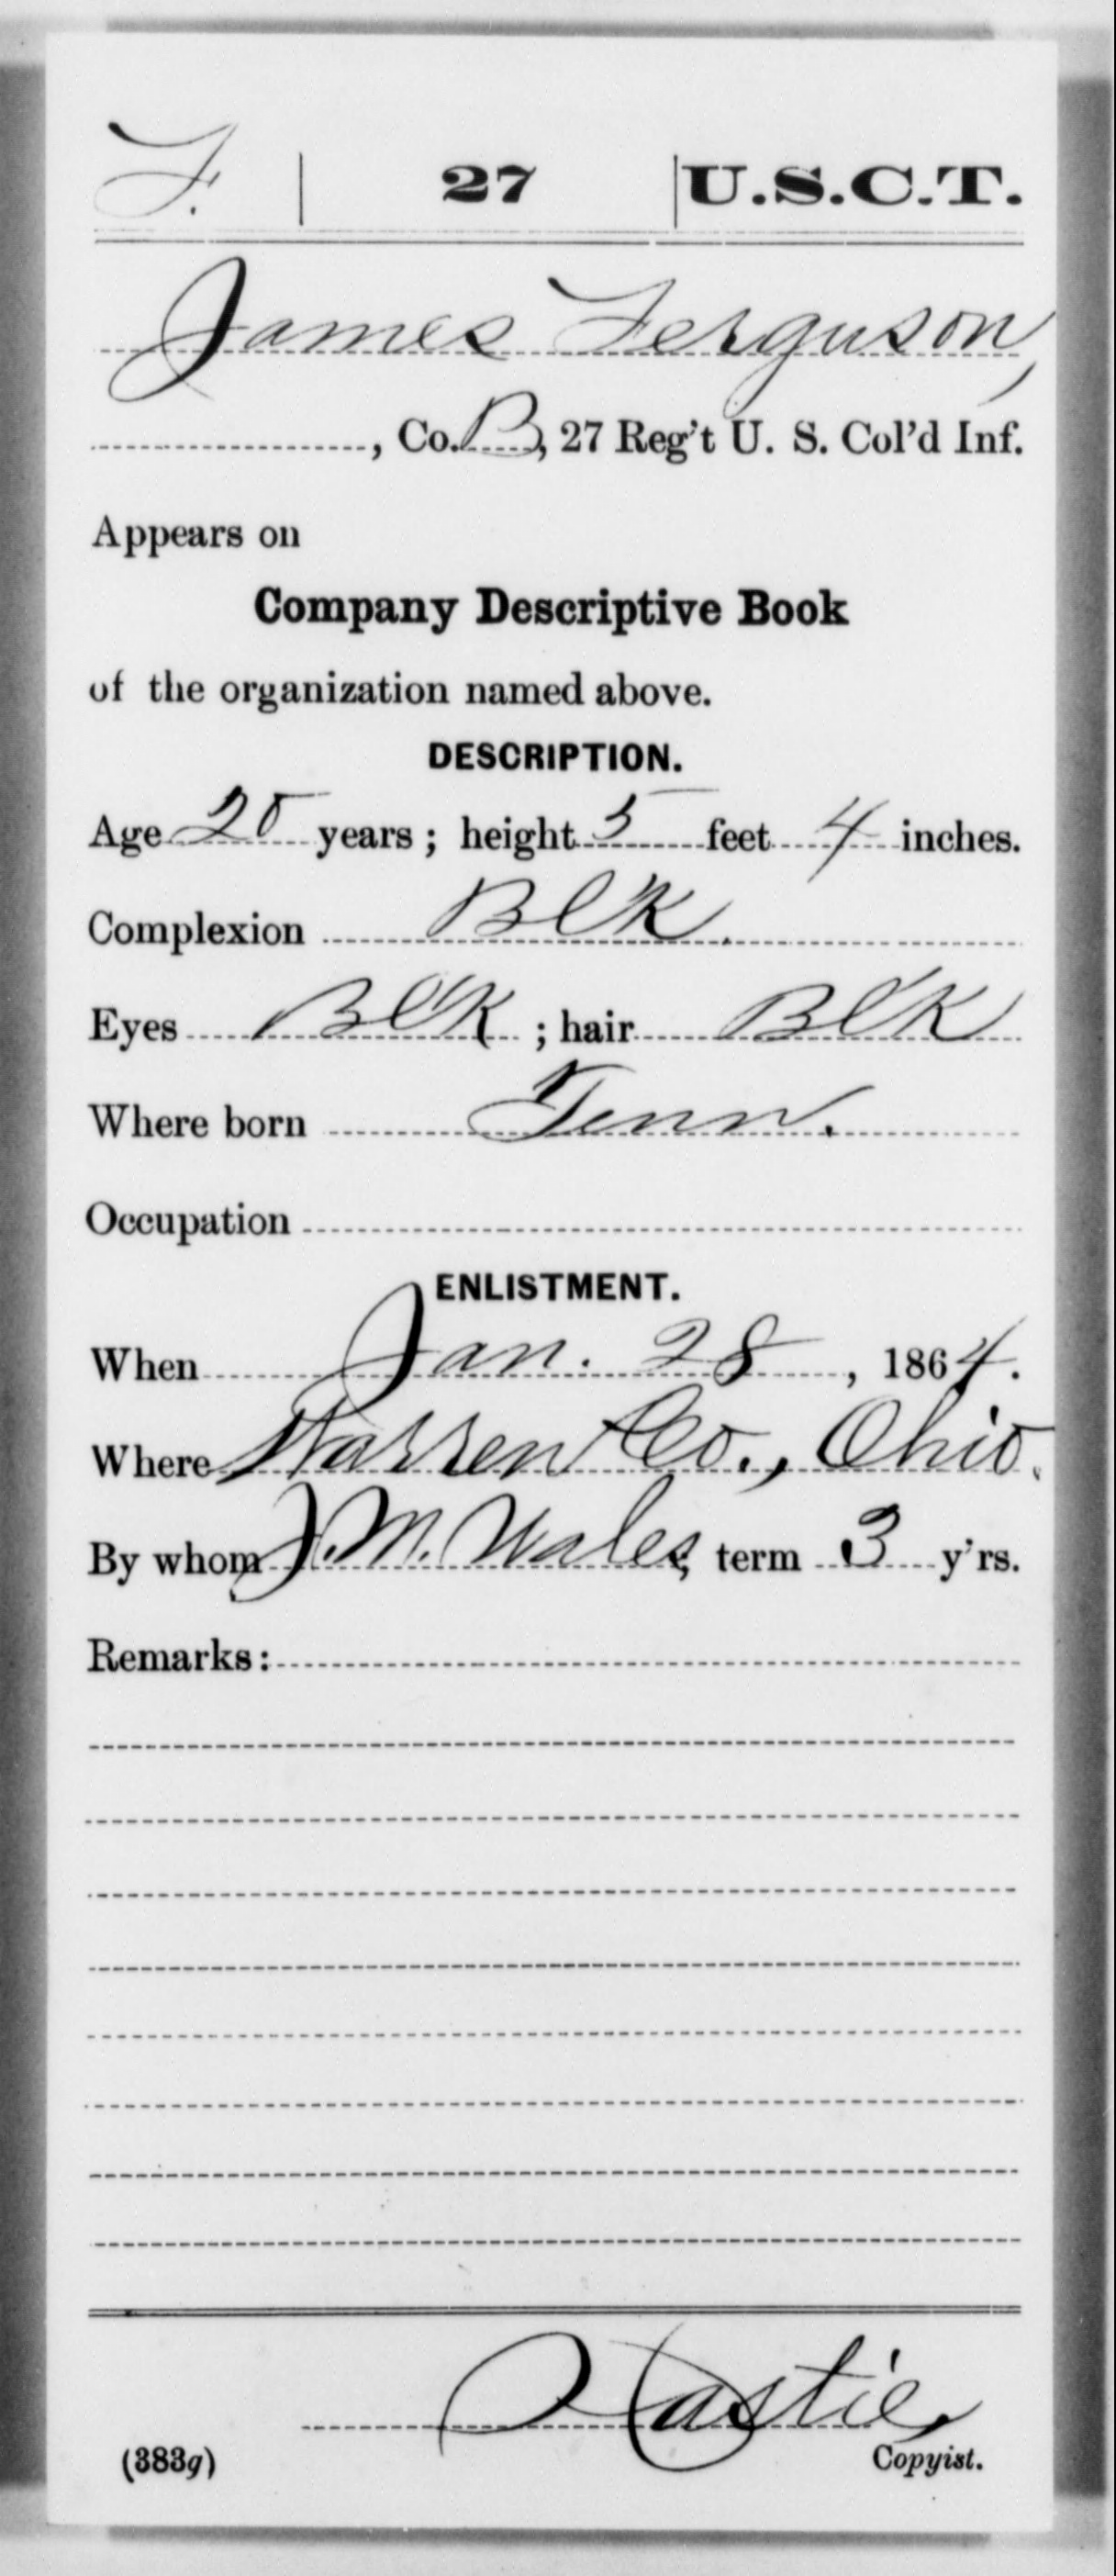 F. | 27 | U.S.C.T.
James Ferguson,
, Co. B, 27 Reg't U. S. Col'd Inf.
Appears on
Company Descriptive Book
of the organization named above.
DESCRIPTION.
Age 25 years; height 5 feet 4 inches.
Complexion Blk.
Eyes Blk; hair Blk
Where born Tenn.
Occupation
ENLISTMENT.
When Jan. 28, 1864.
Where Warren Co., Ohio.
By whom J. M. Wales, term 3 y'rs.
Remarks:
Hastie
(383g) Copyist.